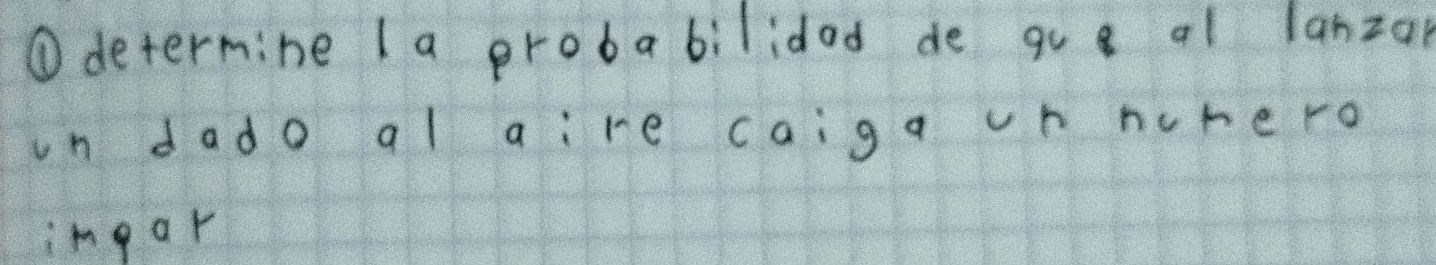 ① determine la probabilidad de que al lanzar
un dado al aire caiga un numero
impar